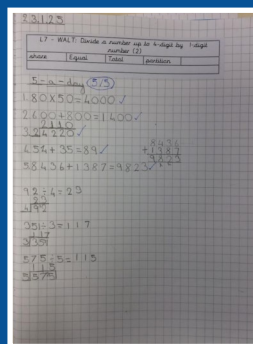 23.1.23
L7 - WALT: Divide a number up to 4-digit by 1-digit
number (2)
share Equal Total partition
5-a-day 5/5
1.80×50=4000 ✓
2.600+800=1400 ✓
2110
3.2 4220 ✓
4.54+35=89 ✓
8436
+1387
9823
5.8436+1387=9823 ✓
92÷4=23
23
4 92
351÷3=117
117
3 351
575÷5=115
115
5 575